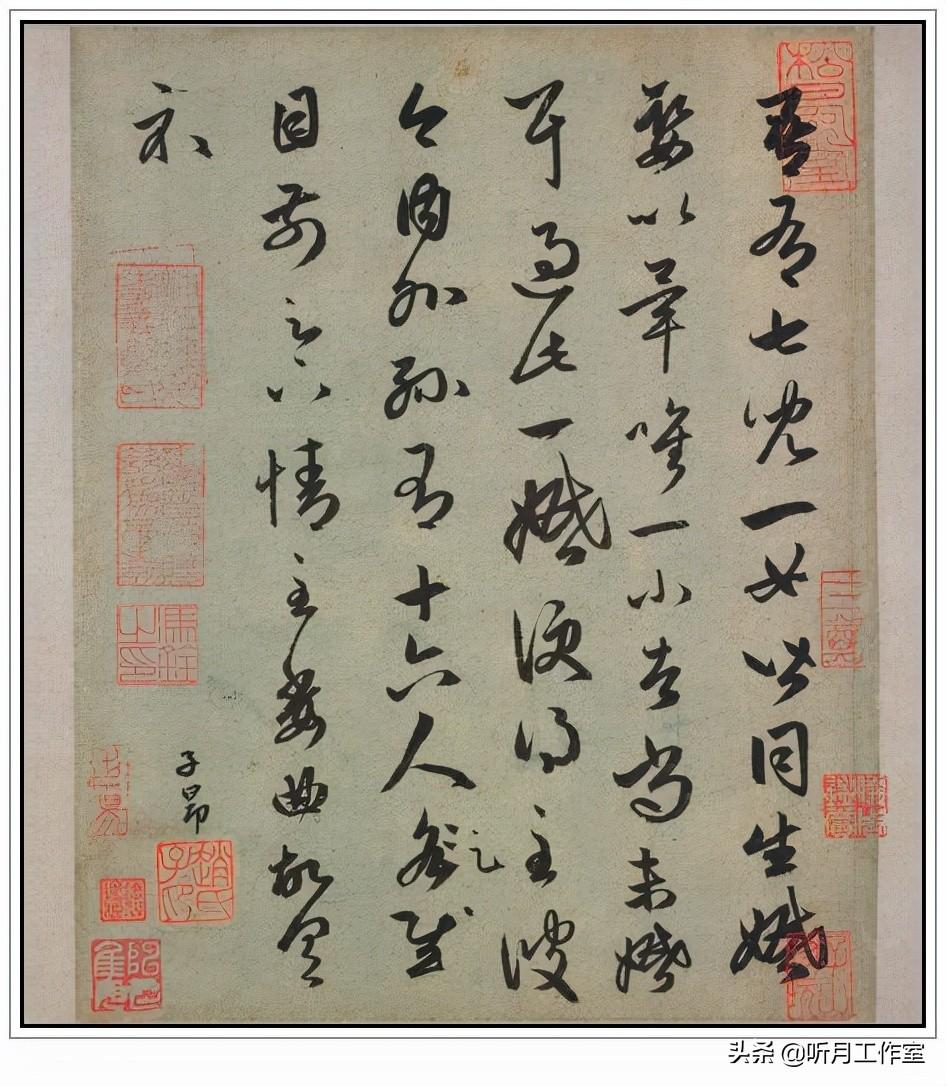 吾有七兒一女皆同生婚
娶以畢唯一小者尚未婚
耳過此一婚便得至彼
今內外孫有十六人足慰
目前足下情至委曲故具
示
子昂
头条 @听月工作室